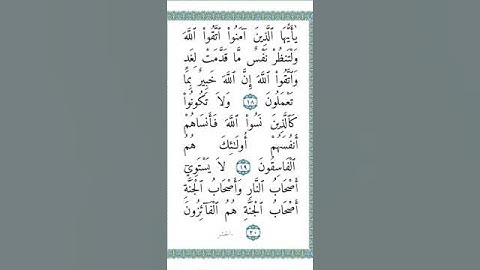 يَٰأَيُّهَا ٱلَّذِينَ آمَنُواْ ٱتَّقُواْ ٱللَّهَ
وَلْتَنظُرْ نَفْسٌ مَّا قَدَّمَتْ لِغَدٍ
وَٱتَّقُواْ ٱللَّهَ إِنَّ ٱللَّهَ خَبِيرٌ بِمَا
تَعْمَلُونَ ١٨ وَلاَ تَكُونُواْ
كَٱلَّذِينَ نَسُواْ ٱللَّهَ فَأَنسَاهُمْ
أَنفُسَهُمْ أُولَـٰئِكَ هُمُ
ٱلْفَاسِقُونَ ١٩ لاَ يَسْتَوِيۤ
أَصْحَابُ ٱلنَّارِ وَأَصْحَابُ ٱلْجَنَّةِ
أَصْحَابُ ٱلْجَنَّةِ هُمُ ٱلْفَآئِزُونَ
٢٠ الحشر